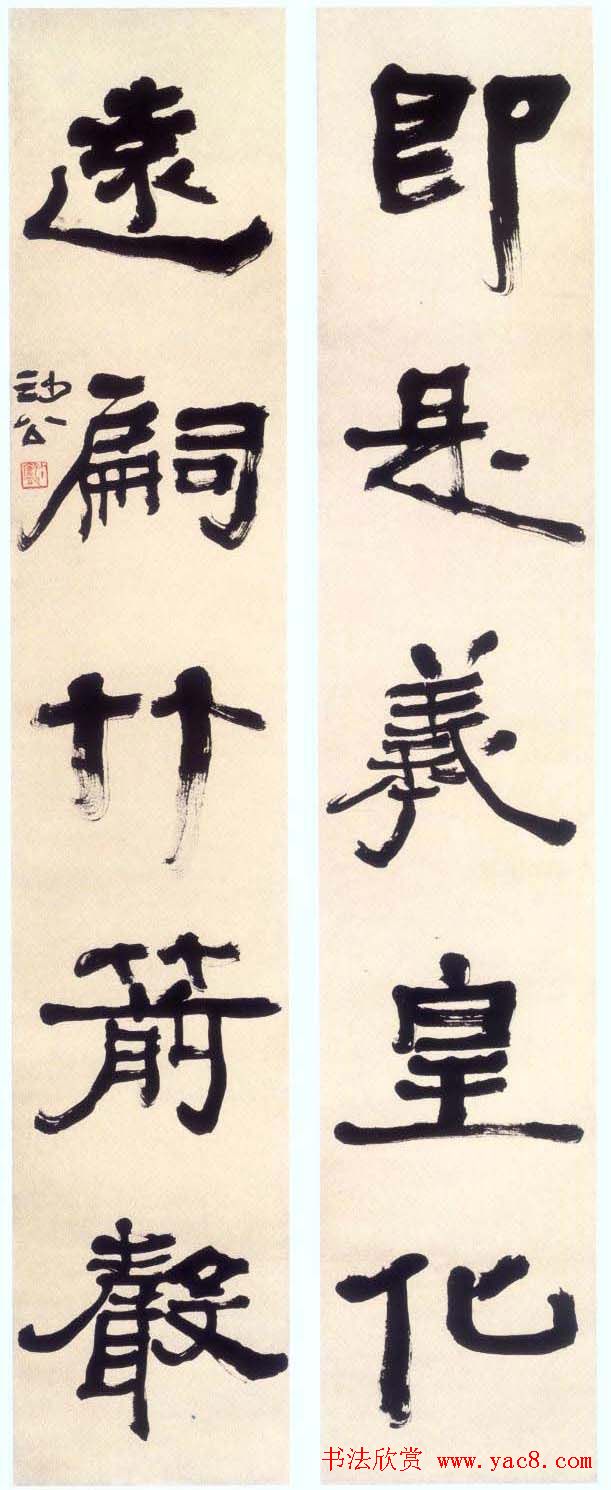 即是義皇化
遠嗣竹箭聲
书法欣赏 www.yac8.com